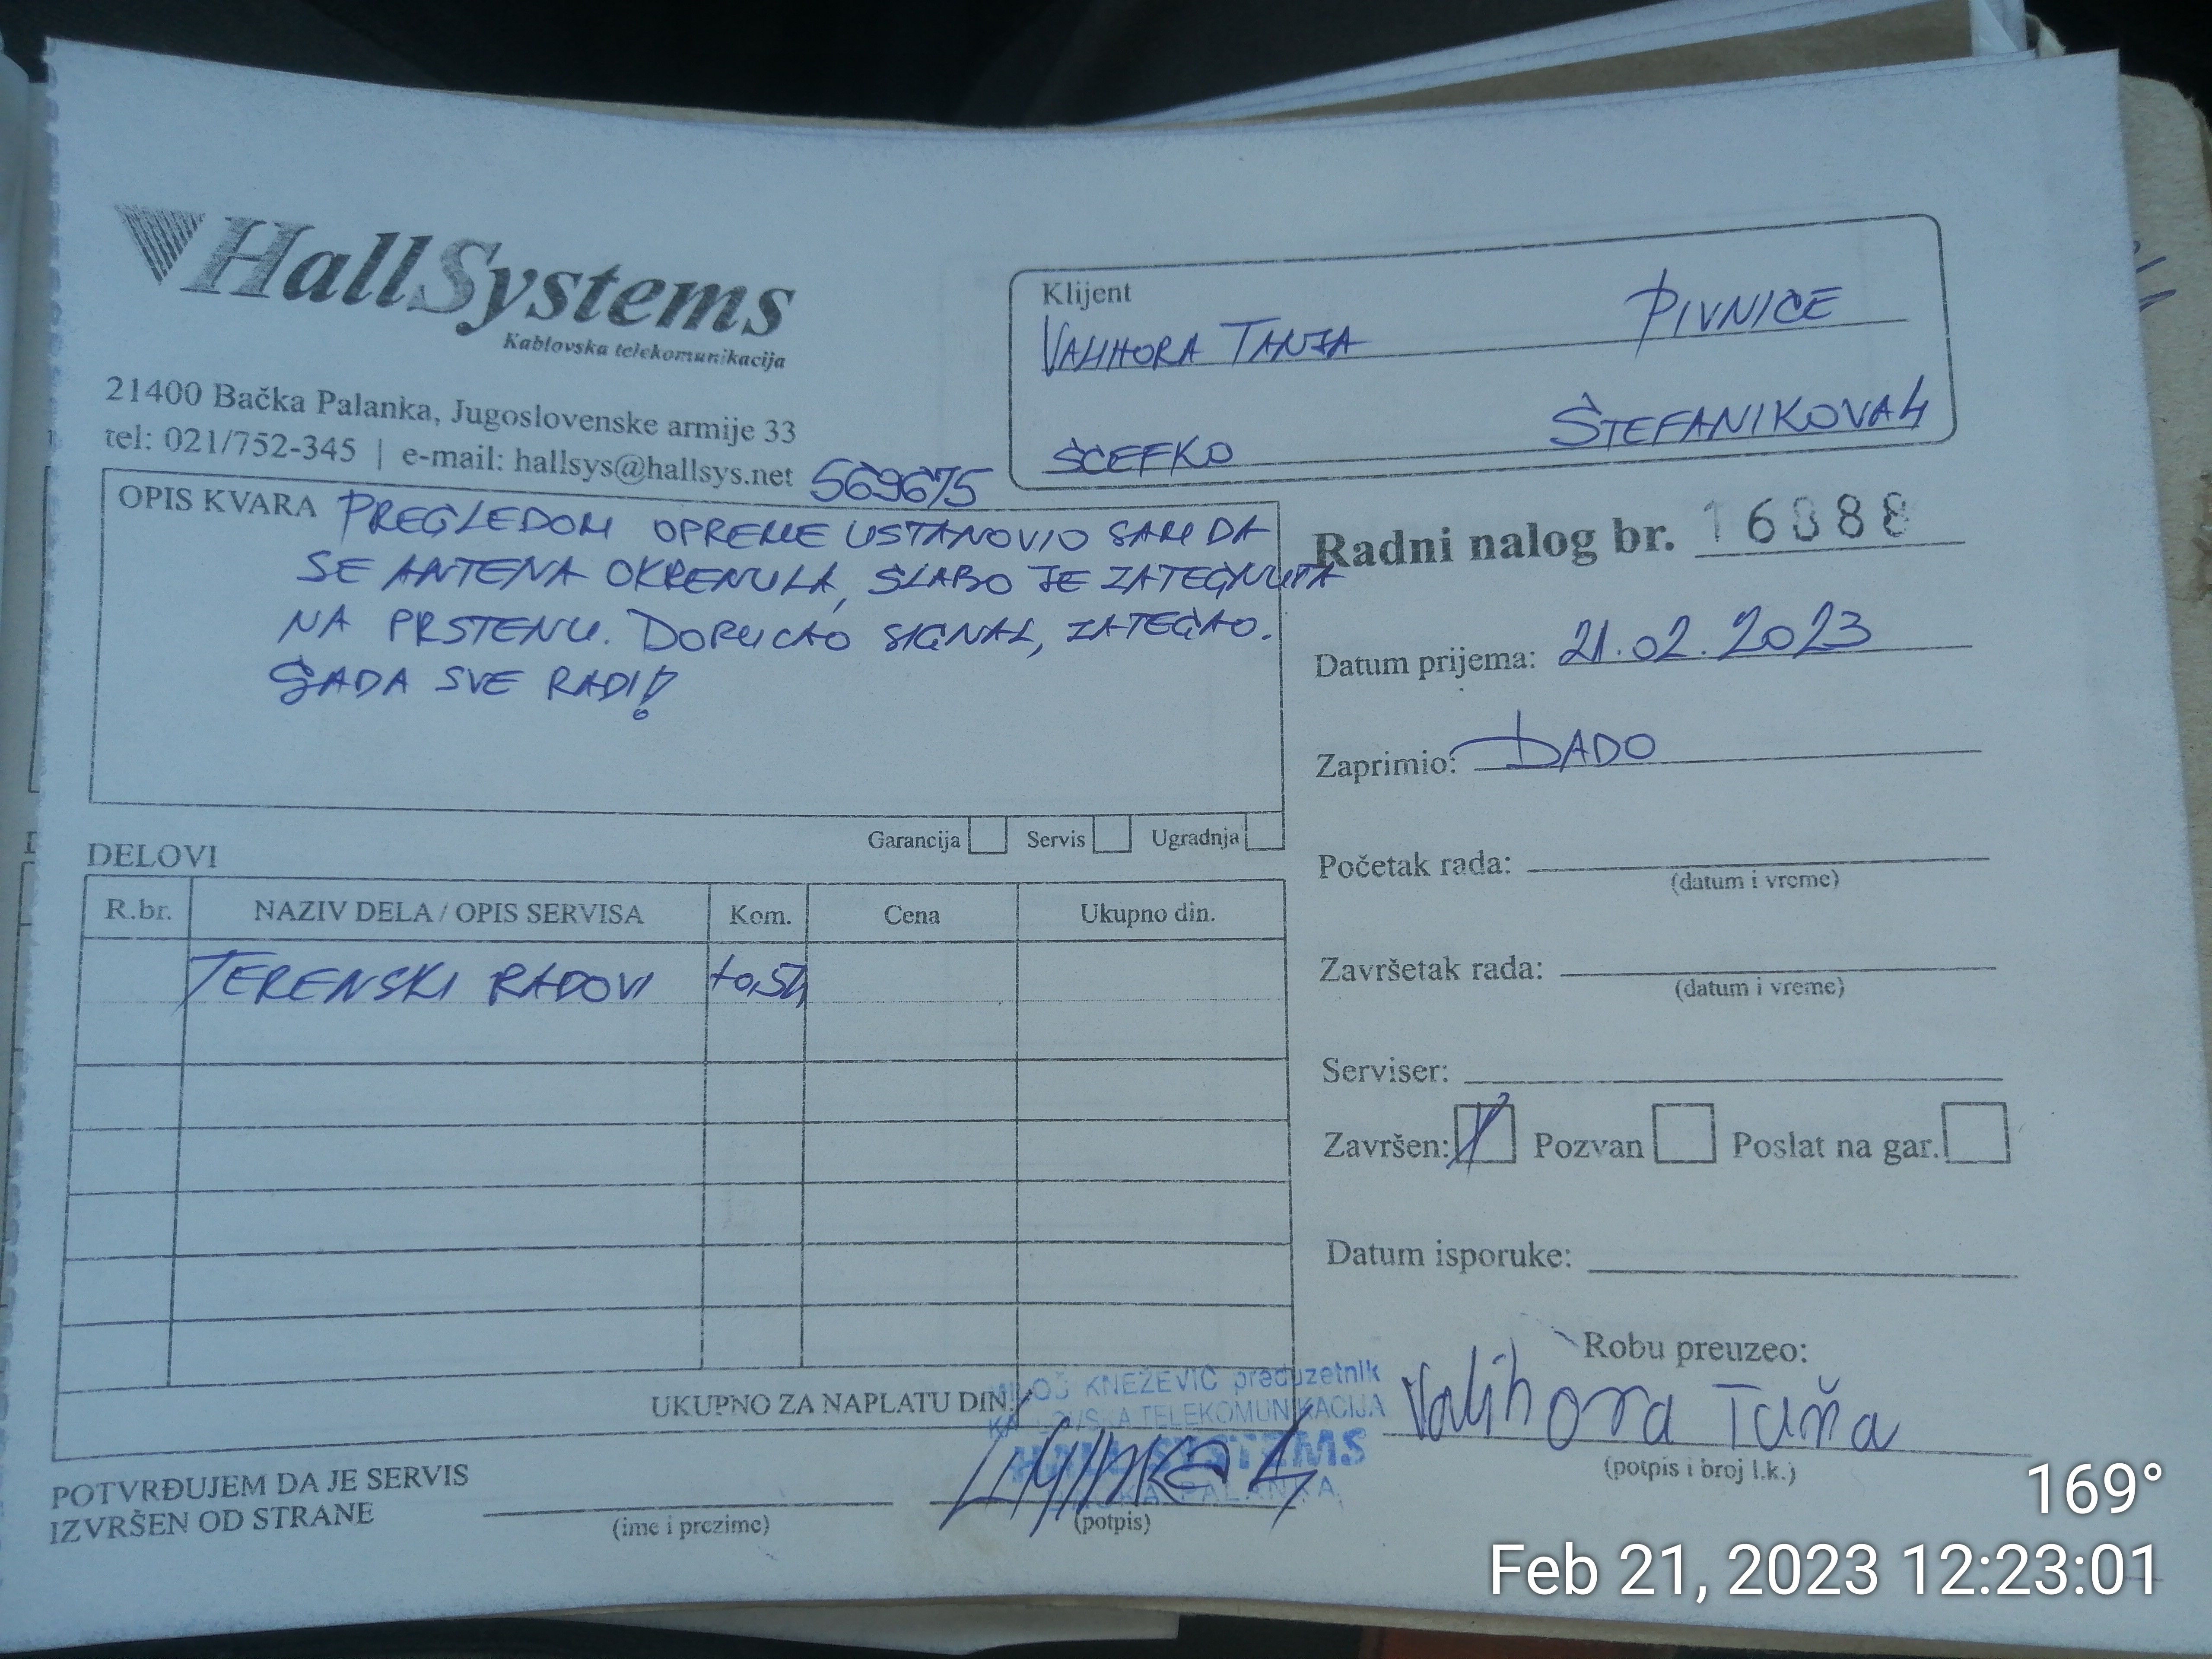 HallSystems
Kablovska telekomunikacija
21400 Bačka Palanka, Jugoslovenske armije 33
tel: 021/752-345 | e-mail: hallsys@hallsys.net
569675
Klijent
VALIHORA TANJA PIVNICE
ŠĆEFKO ŠTEFANIKOVA 4
OPIS KVARA PREGLEDOM OPREME USTANOVIO SAM DA
SE ANTENA OKRENULA, SLABO JE ZATEGNUTA
NA PRSTENU. SIGNAL, ZATEGAO.
SADA SVE RADI!
Garancija Servis Ugradnja
Radni nalog br. 16088
Datum prijema: 21.02.2023
Zaprimio: DADO
Početak rada:
(datum i vreme)
Završetak rada:
(datum i vreme)
Serviser:
Završen: Pozvan Poslat na gar.
Datum isporuke:
DELOVI
R.br. NAZIV DELA / OPIS SERVISA Kom. Cena Ukupno din.
TERENSKI RADOVI
UKUPNO ZA NAPLATU DIN:
MILOŠ KNEŽEVIĆ preduzetnik
KABLOVSKA TELEKOMUNIKACIJA
HALL SYSTEMS
BAČKA PALANKA
POTVRĐUJEM DA JE SERVIS
IZVRŠEN OD STRANE
(ime i prezime)
(potpis)
Robu preuzeo:
Valihora Taňa
(potpis i broj l.k.)
169°
Feb 21, 2023 12:23:01